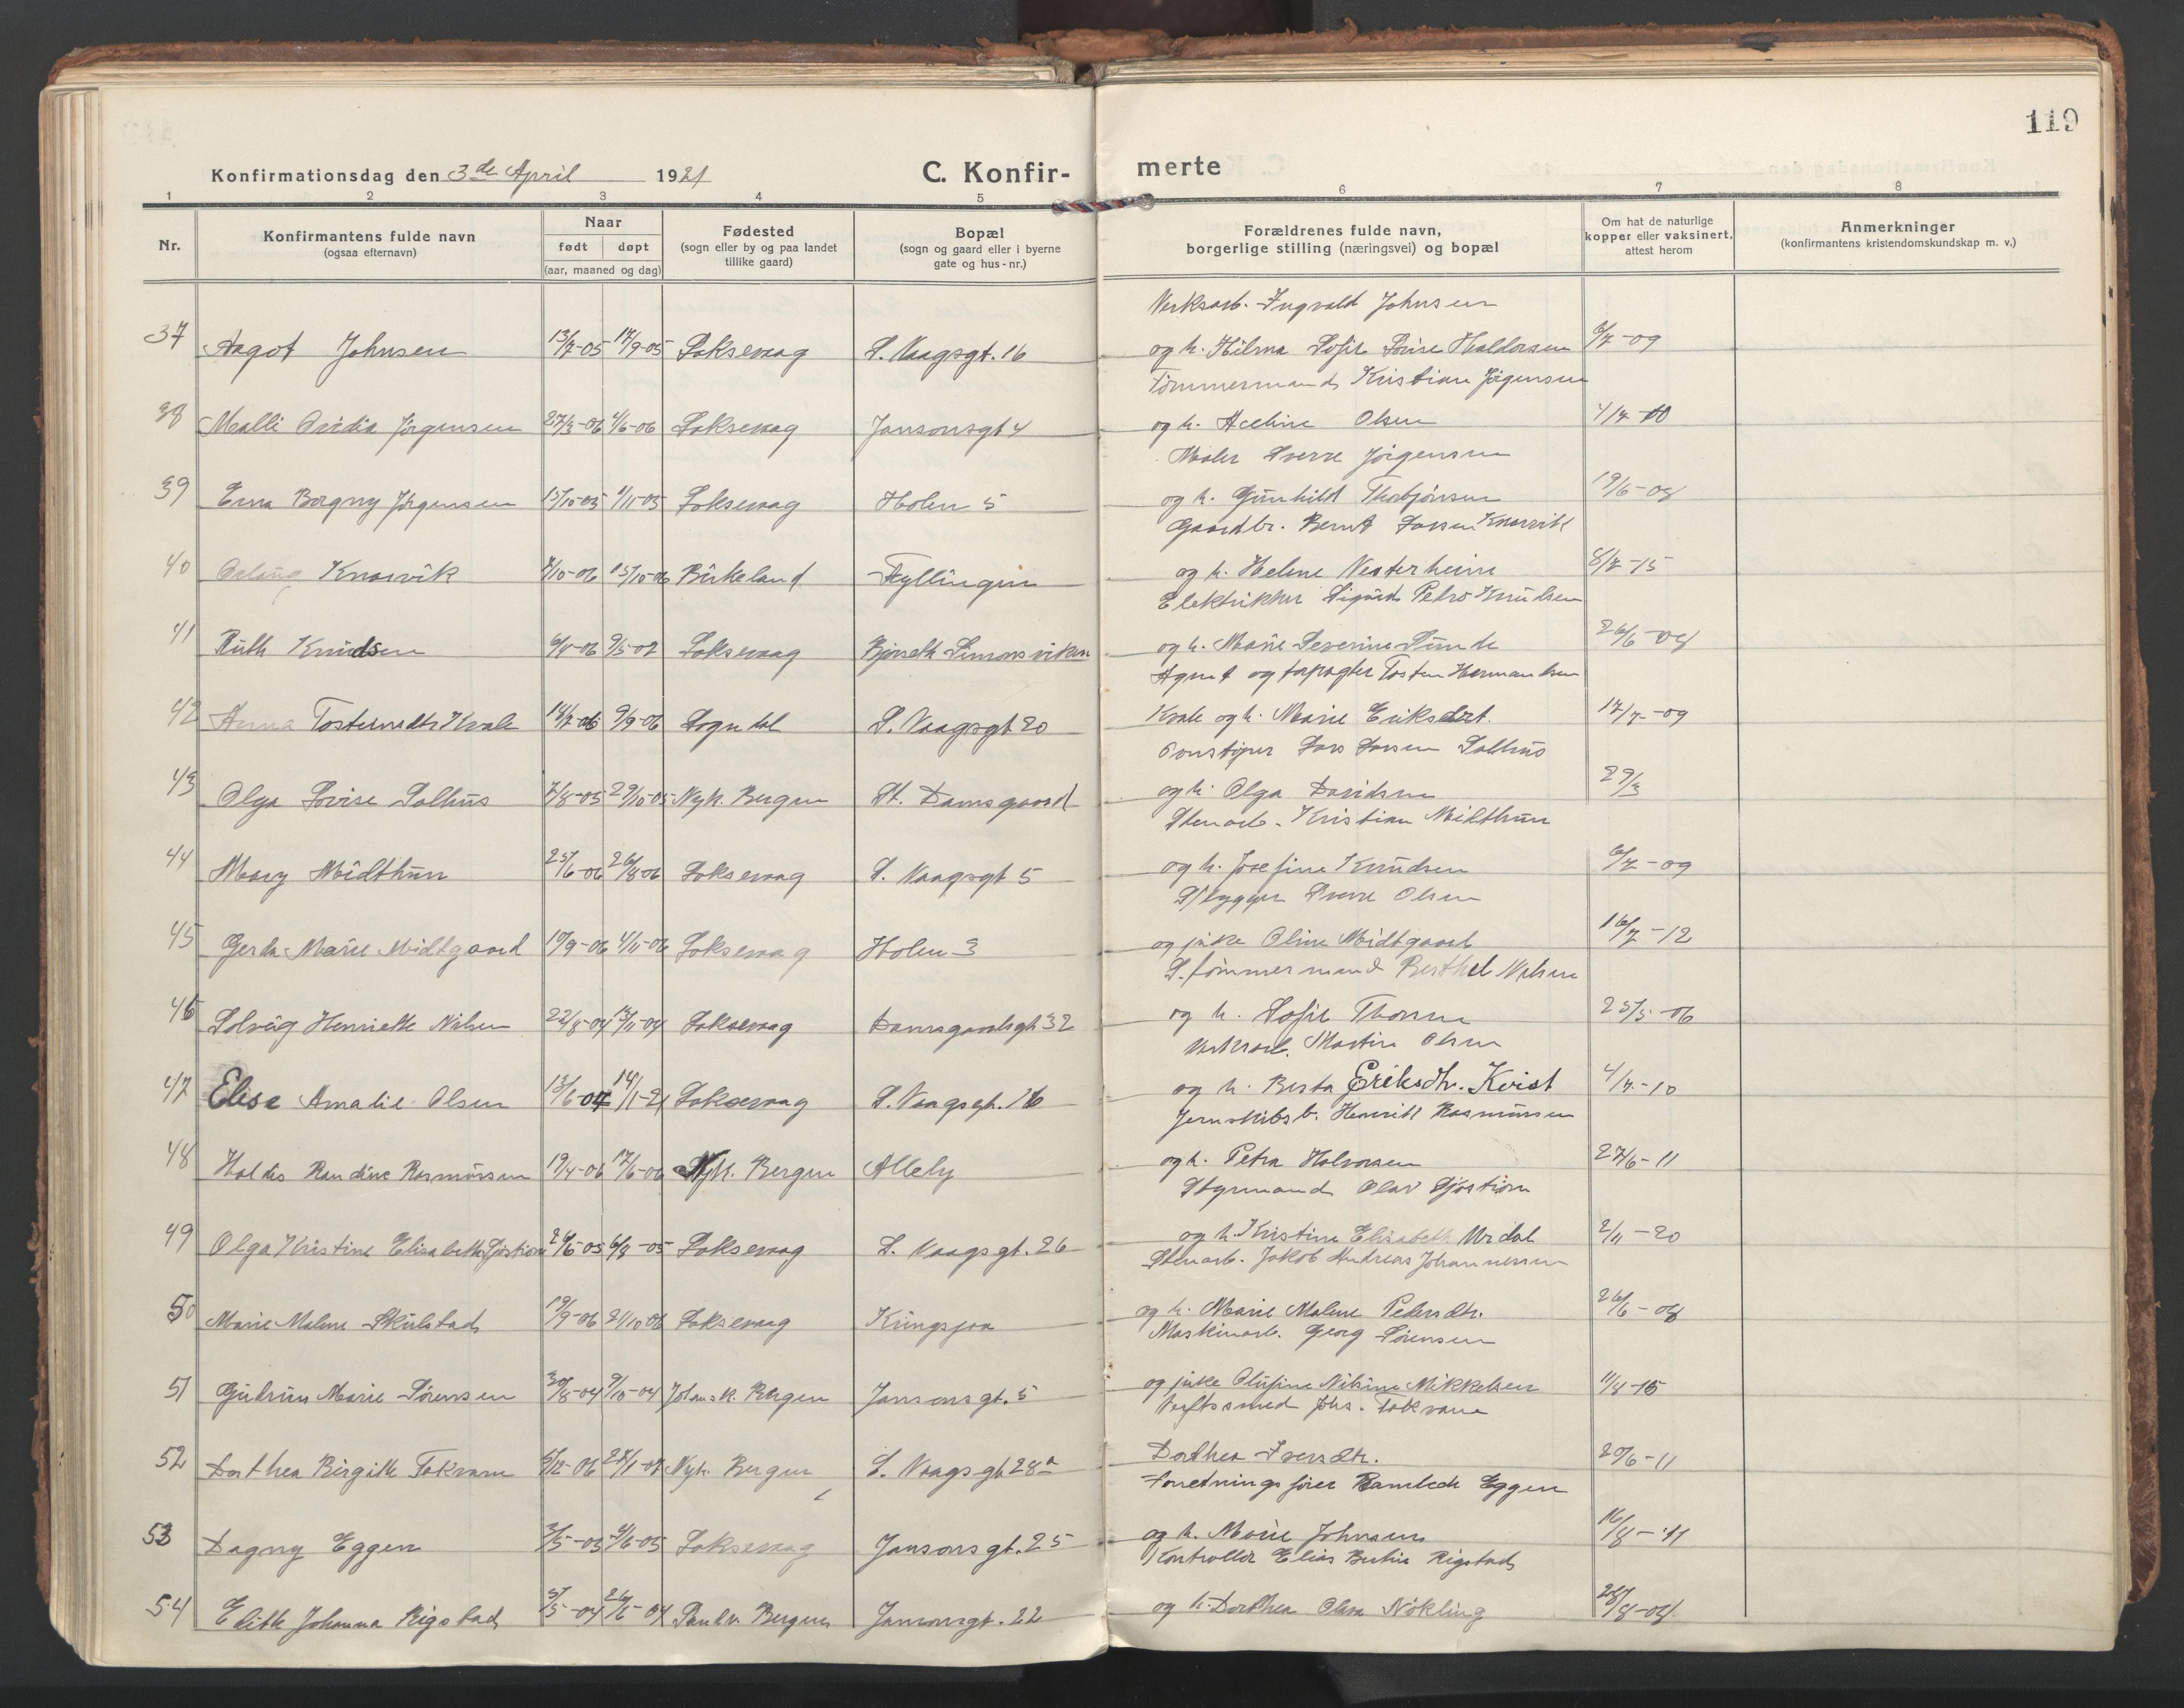 119
Konfirmationsdag den 3de April 1921
C. Konfir-
merte
1 2 3 4 5 6 7 8
Nr.
Konfirmantens fulde navn
(ogsaa efternavn)
Naar
født døpt
(aar, maaned og dag)
Fødested
(sogn eller by og paa landet
tillike gaard)
Bopæl
(sogn og gaard eller i byerne
gate og hus-nr.)
Forældrenes fulde navn,
borgerlige stilling (næringsvei) og bopæl
Om hat de naturlige
kopper eller vaksinert,
attest herom
Anmerkninger
(konfirmantens kristendomskundskap m. v.)
Verksarb. Ingvald Johnsen
37 Aagot Johnsen 13/7-05 17/9-05 Laksevaag L. Vaagsgt. 16 og h. Hilma Sofie Lovise Haldorsen 6/7-09
Tømmermand Kristian Jörgensen
38 Malli Ovidia Jörgensen 27/3-06 4/6-06 Laksevaag Jansonsgt 4 og h. Olsen 4/7-10
Maler Sverre Jörgensen
39 Erna Borgny Jörgensen 15/10-05 /11-05 Laksevaag Holen 5 og h. Gunhild Thorbjörnsen 19/6-08
Gaardbr. Bernt Larsen Knarvik
40 Aslaug Knarvik 7/10-06 15/10-06 Birkeland Fyllingen og h. Helene Vesterheim 8/7-15
Elektrikker Sigurd Petro Knudsen
41 Ruth Knudsen 6/8-06 9/5-07 Laksevaag Simonsviken og h. Marie Severine Sunde 26/6-08
Agent og Tosten Hermansen
42 Anna Tostensdtr Kvale 14/7-06 9/9-06 Sogndal L. Vaagsgt 20 Kvale og h. Marie Eriksdtr. 17/7-09
Lars Larsen Solhus
43 Olga Lovise Solhus 7/8-05 29/10-05 Nyk. Bergen St. Damsgaard og h. Olga Davidsen 29/3
Stenarb. Kristian Midthun
44 Mary Midthun 25/6-06 26/8-06 Laksevaag L. Vaagsgt 5 og h. Josefine Knudsen 6/7-09
Sverre Olsen
45 Gerda Marie Midtgaard 17/9-06 4/11-06 Laksevaag Holen 3 og pike Oline Midtgaard 16/7-12
S. tömmermand Berthel Nilsen
46 Solveig Henriette Nilsen 22/8-04 13/11-04 Laksevaag Damsgaardsgt 32 og h. Sofie Thorsen 25/5-06
Verksarb. Martin Olsen
47 Elise Amalie Olsen 13/6-04 14/1-21 Laksevaag L. Vaagsgt. 16 og h. Berta Eriksdtr. Kvist 4/7-10
Jernskibsb. Henrik Rasmussen
48 Haldis Randine Rasmussen 19/4-06 17/6-06 Nyk. Bergen Allely og h. Petra Halvorsen 27/6-11
Styrmand Olav Sjöstiön
49 Olga Kristine Elisabeth Sjöstiön 24/6-05 6/8-05 Laksevaag L. Vaagsgt. 26 og h. Kristine Elisabeth Urdal 2/11-20
Stenarb. Jakob Andreas Johannessen
50 Marie Malene Skulstad 19/9-06 21/10-06 Laksevaag Kringsjaa og h. Marie Malene Pedersdtr. 26/6-08
Maskinarb. Georg Sörensen
51 Gudrun Marie Sörensen 30/8-04 9/10-04 Johansk. Bergen Jansonsgt. 5 og pike Olufine Nilsine Mikkelsen 11/8-15
Verftssmed Johs. Tokvam
52 Dorthea Birgitte Tokvam 6/12-06 27/1-07 Nyk. Bergen L. Vaagsgt 28a Dorthea Iversdtr. 20/6-11
Forretningsförer Eggen
53 Dagny Eggen 3/5-05 4/6-05 Laksevaag Jansonsgt. 25 og h. Marie Johnsen 16/8-11
Kontrollör Elias Rigstad
54 Edith Johanna Rigstad 5/5-04 26/6-04 Bergen Jansonsgt. 22 og h. Dorthea Olava Nökling 28/8-08